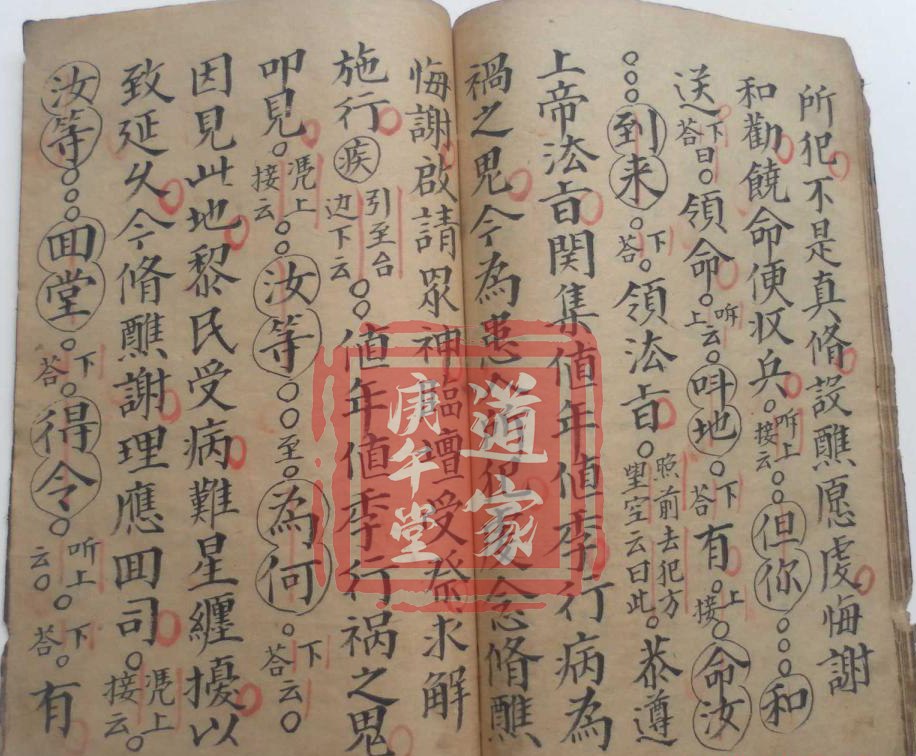 所犯不是真脩設醮愿虔悔謝
和勸饒命便収兵○听上接云○但你○○○和
送下荅曰○領命○听上云○叫地○下荅○有○上接○命汝
○○○到来○下荅○領法旨○照前去犯方望空云曰此○恭遵
上帝法旨関集值年值季行病為
禍之鬼今為患念脩醮
悔謝啟請眾神臨壇受祭求解
施行疾引至台边下云○○值年值季行祸之鬼
叩見○凴上接云○○汝等○○○至○為何○下荅云○
因見此地黎民受病難星纏擾以
致延久今脩醮謝理應囬司○凴上接云○
汝等○○○囬堂○下荅○得令○听上云○下荅○有
道家
庚午堂